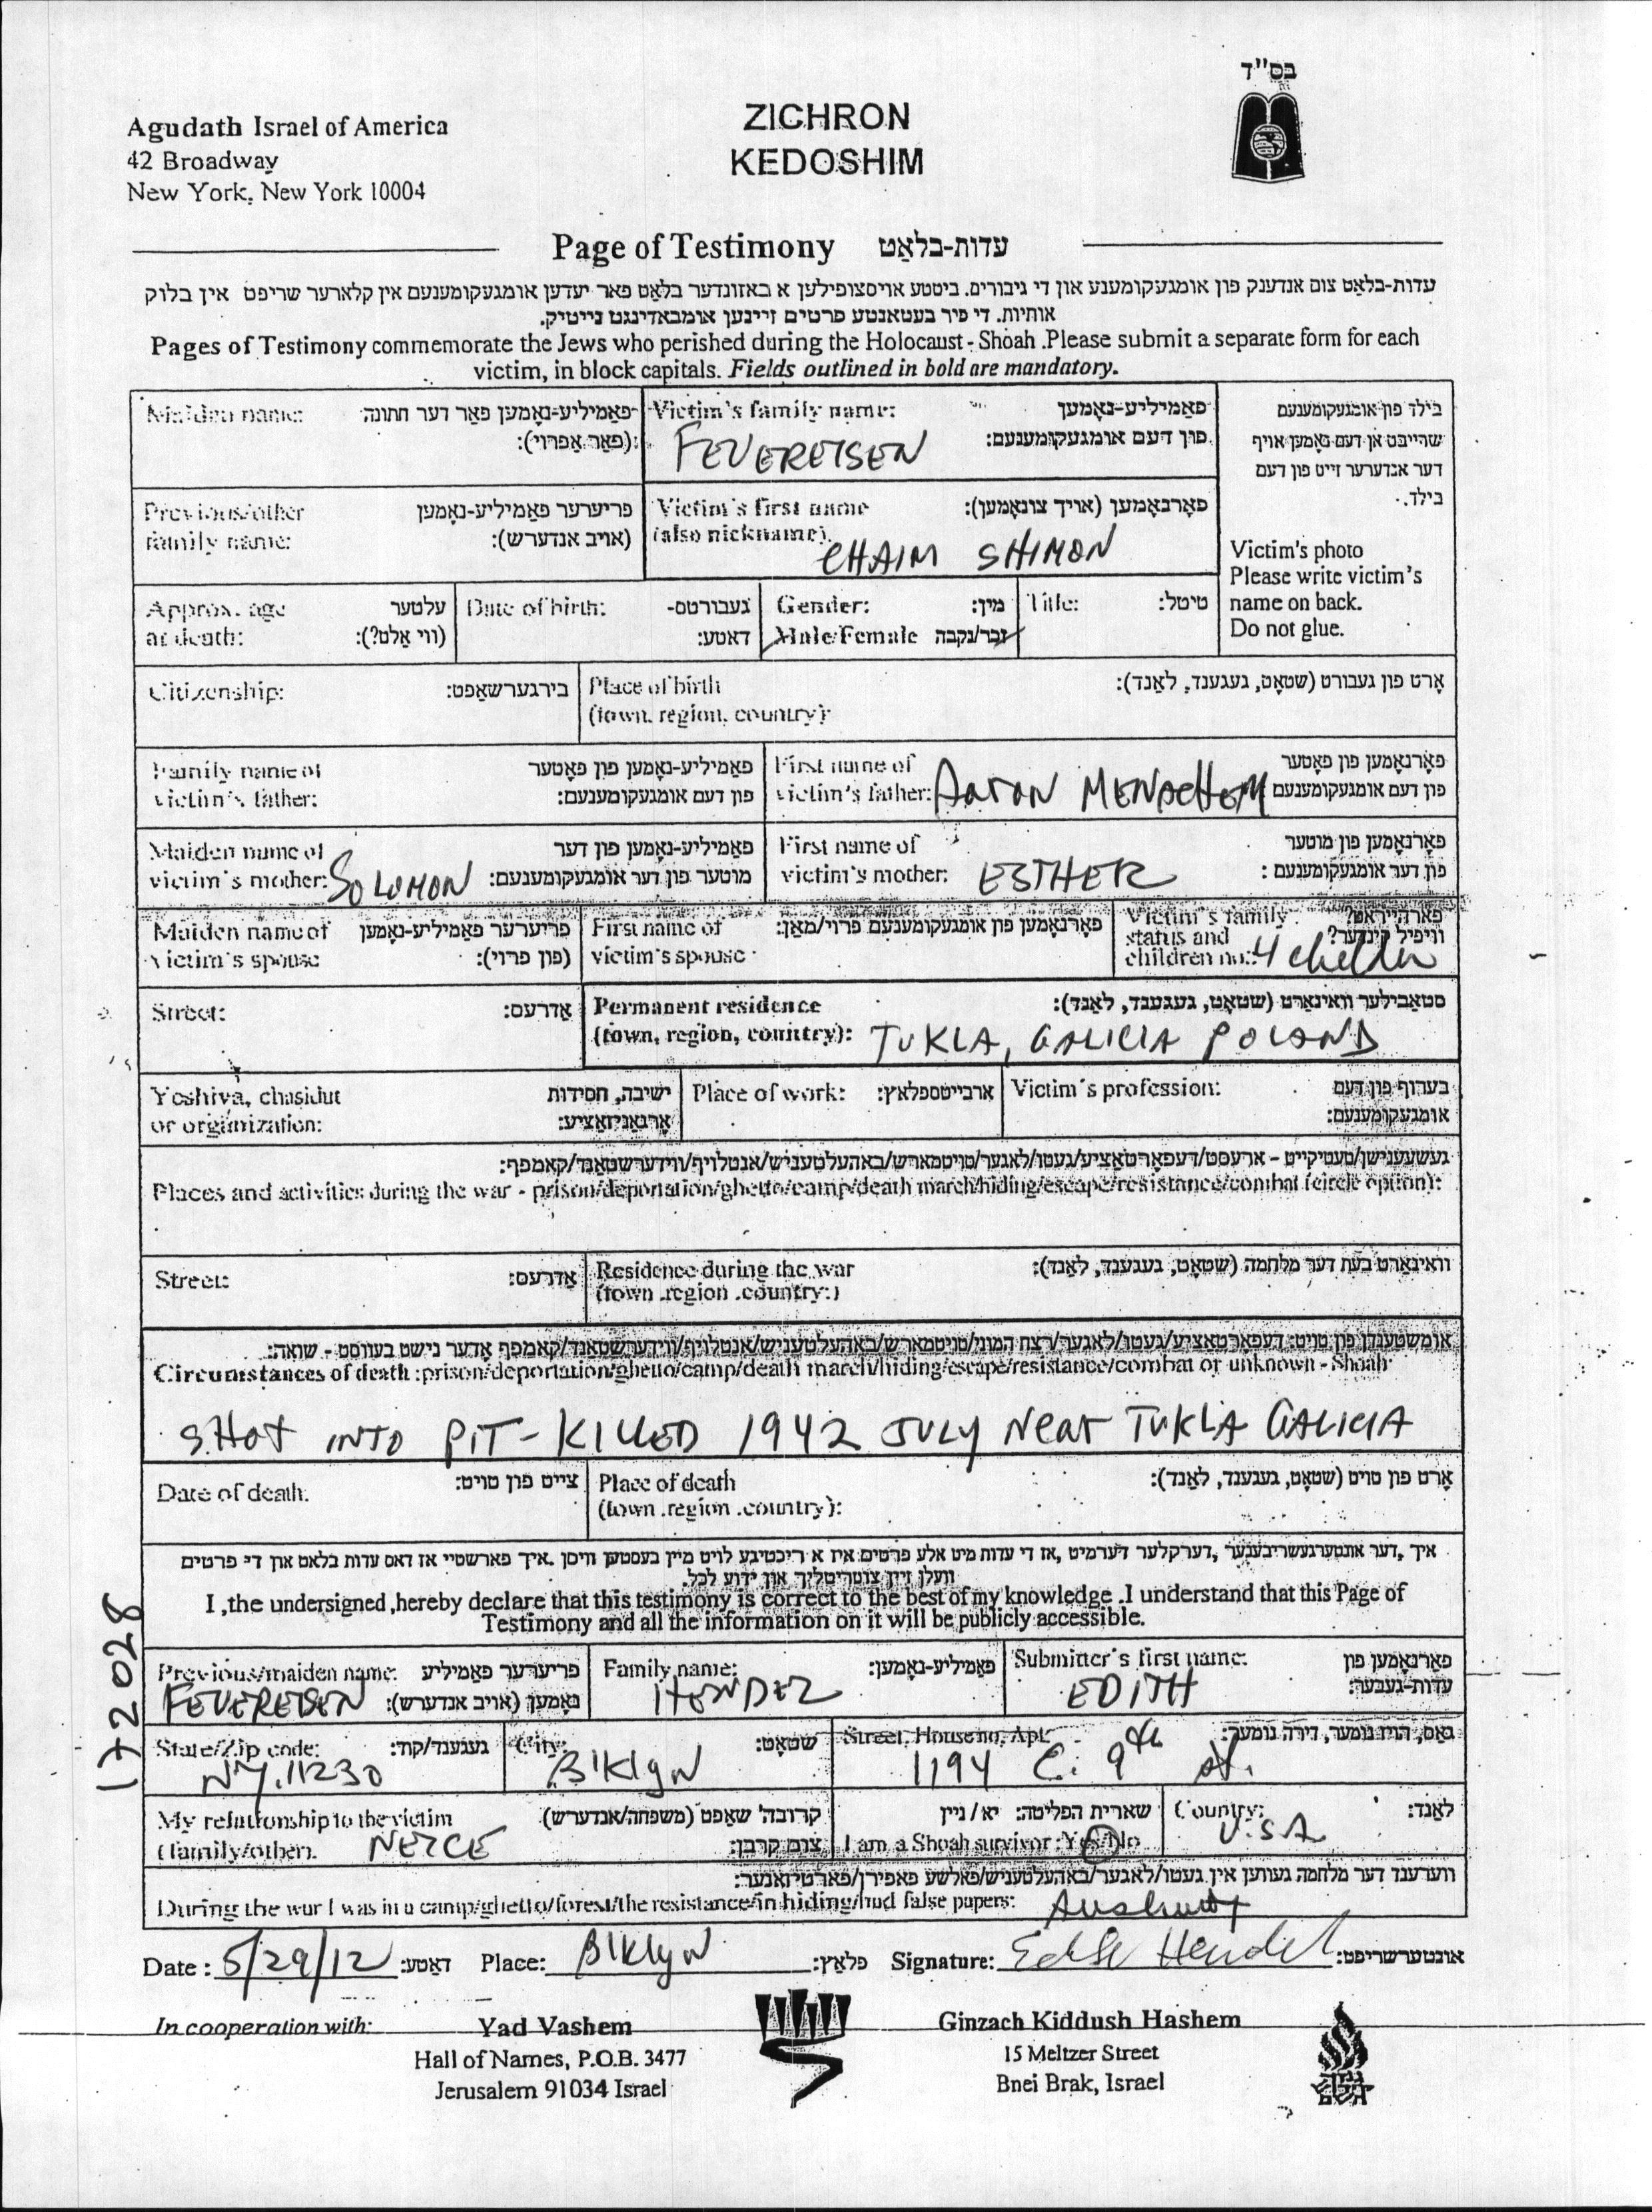 בס"ד
Agudath Israel of America
42 Broadway
New York, New York 10004
ZICHRON
KEDOSHIM
Page of Testimony עדות-בלאַט
עדות-בלאַט צום אנדענק פון אומגעקומענע און די גיבורים. ביטע אויסצופילען א באזונדער בלאַט פאר יעדען אומגעקומענעם אין קלארער שריפט אין בלוק
אותיות. די פיר בעטאנטע פרטים זיינען אומבאדינגט נייטיק.
Pages of Testimony commemorate the Jews who perished during the Holocaust - Shoah .Please submit a separate form for each
victim, in block capitals. Fields outlined in bold are mandatory.
Maiden name: פאַמיליע-נאָמען פאַר דער חתונה
(פאַר אַפרוי):
Victim's family name: פאַמיליע-נאָמען
פון דעם אומגעקומענעם:
FEUEREISEN
בילד פון אומגעקומענעם
שרייבט אן דעם נאָמען אויף
דער אנדערער זייט פון דעם
בילד.
Previous/other פריערער פאַמיליע-נאָמען
family name: (אויב אנדערש):
Victim's first name פאָרנאָמען (אויך צונאָמען):
(also nickname)
CHAIM SHIMON
Victim's photo
Please write victim's
name on back.
Do not glue.
Approx. age עלטער
at death: (ווי אַלט?):
Date of birth: געבורטס-
דאַטע:
Gender: מין:
Male/Female זכר/נקבה
Title: טיטל:
Citizenship: בירגערשאַפט:
Place of birth אָרט פון געבורט (שטאָט, געגענד, לאַנד):
(town, region, country):
Family name of פאַמיליע-נאָמען פון פאָטער
victim's father: פון דעם אומגעקומענעם:
First name of פאָרנאָמען פון פאָטער
victim's father: AaroN MENACHEM פון דעם אומגעקומענעם
Maiden name of פאַמיליע-נאָמען פון דער
victim's mother: SOLOMON מוטער פון דער אומגעקומענעם:
First name of פאָרנאָמען פון מוטער
victim's mother: ESTHER פון דער אומגעקומענעם:
Maiden name of פריערער פאַמיליע-נאָמען
victim's spouse (פון פרוי):
First name of פאָרנאָמען פון אומגעקומענעם פרוי/מאַן:
victim's spouse
Victim's family פארהייראט?
status and וויפיל קינדער?
children no.: 4 children
Street: אַדרעס:
Permanent residence סטאַבילער וואוינאָרט (שטאָט, געגענד, לאַנד):
(town, region, country): TUKLA, GALICIA POLAND
Yeshiva, chasidut ישיבה, חסידות
or organization: אָרגאַניזאַציע:
Place of work: ארבייטספּלאַץ:
Victim's profession: בערוף פון דעם
אומגעקומענעם:
געשעענישן/טעטיקייט - ארעסט/דעפאָרטאַציע/געטו/לאַגער/טויטמארש/באהעלטעניש/אנטלויף/ווידערשטאַנד/קאמפף:
Places and activities during the war - prison/deportation/ghetto/camp/death march/hiding/escape/resistance/combat (circle option):
Street: אַדרעס:
Residence during the war וואוינאָרט בעת דער מלחמה (שטאָט, געגענד, לאַנד):
(town .region .country:)
אומשטענדן פון טויט: דעפאָרטאַציע/געטו/לאַגער/רצח המוני/טויטמארש/באהעלטעניש/אנטלויף/ווידערשטאַנד/קאמפף אדער נישט בעוואוסט - שואה:
Circumstances of death :prison/deportation/ghetto/camp/death march/hiding/escape/resistance/combat or unknown - Shoah
SHOT INTO PIT - KILLED 1942 JULY Near TUKLA GALICIA
Date of death: צייט פון טויט:
Place of death אָרט פון טויט (שטאָט, געגענד, לאַנד):
(town .region .country):
איך, דער אונטערגעשריבענער, דערקלער דערמיט, אז די עדות מיט אלע פרטים איז א ריכטיגע לויט מיין בעסטען וויסן. איך פארשטיי אז דאס עדות בלאט און די פרטים
וועלן זיין צוטריטליך און ידוע לכל.
I ,the undersigned ,hereby declare that this testimony is correct to the best of my knowledge .I understand that this Page of
Testimony and all the information on it will be publicly accessible.
172028
Previous/maiden name: פריערער פאַמיליע
FEUEREISEN נאָמען (אויב אנדערש):
Family name: פאַמיליע-נאָמען:
HENDEL
Submitter's first name: פאָרנאָמען פון
עדות-געבער:
EDITH
State/Zip code: געגענד/קוד:
NY. 11230
City: שטאָט:
BlKlyN
Street, House no, Apt: גאַס, הויז נומער, דירה נומער:
1194 E. 9th St.
My relationship to the victim קרובה'שאַפט (משפחה/אנדערש)
(family/other). NEICE צום קרבן:
שארית הפליטה: יא / ניין
I am a Shoah survivor :Yes/No
Country: לאַנד:
U.S.A
ווערענד דער מלחמה געווען אין געטו/לאַגער/באהעלטעניש/פאלשע פאפירן/פארטיזאנער:
During the war I was in a camp/ghetto/forest/the resistance/in hiding/had false papers: Aushwitz
Date : 5/29/12 דאַטע: Place: BlKlyN פּלאַץ: Signature: Edith Hendel אונטערשריפט:
In cooperation with:
Yad Vashem
Hall of Names, P.O.B. 3477
Jerusalem 91034 Israel
Ginzach Kiddush Hashem
15 Meltzer Street
Bnei Brak, Israel